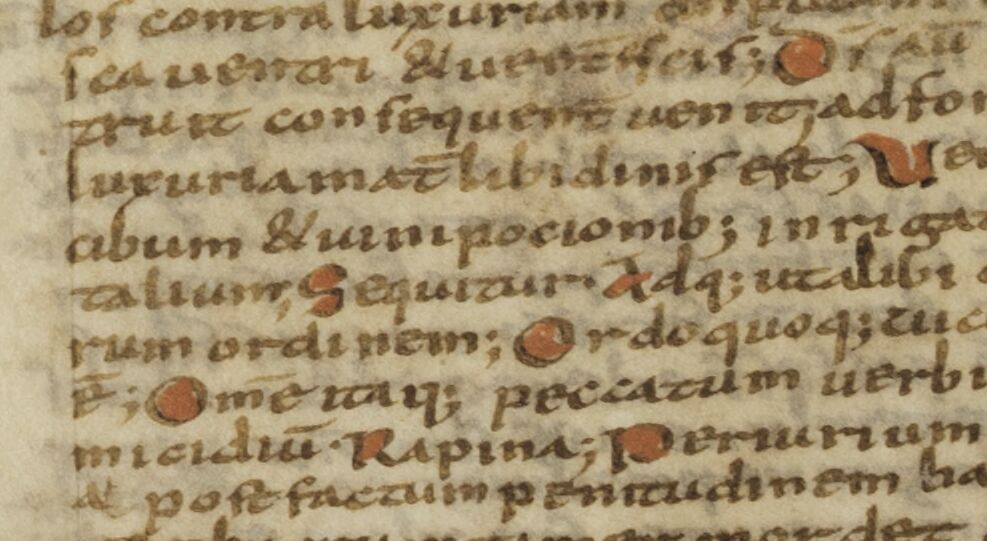 los contra luxuriam
sca uentri & uescēscis; Ds au
truit consequent̄ uenit; ad for
luxuria mat̄ libidinis est; Ver
cibum & uini pocionib; inrigat
talium; Sequitur· Adq; ut alibi
rum ordinem; Ordo quoq; luc
ē; Om̄e itaq; peccatum uerbi
micidiū· Rapina; Periurium
at post factum penitudinem ha